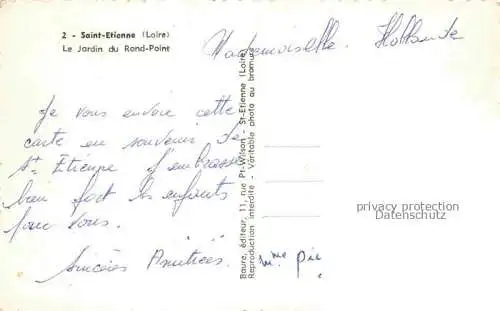 2 - Saint-Etienne (Loire)
Le Jardin du Rond-Point
Mademoiselle. Hollande
Je vous envoie cette
carte en souvenir de
St Etienne j'embrasse
bien fort les enfants
pour vous.
Sincères Amitiées.
Mme Pie
Baure, éditeur, 11, rue Pt-Wilson - St-Etienne (Loire)
Reproduction interdite - Véritable photo au bromure
privacy protection
Datenschutz